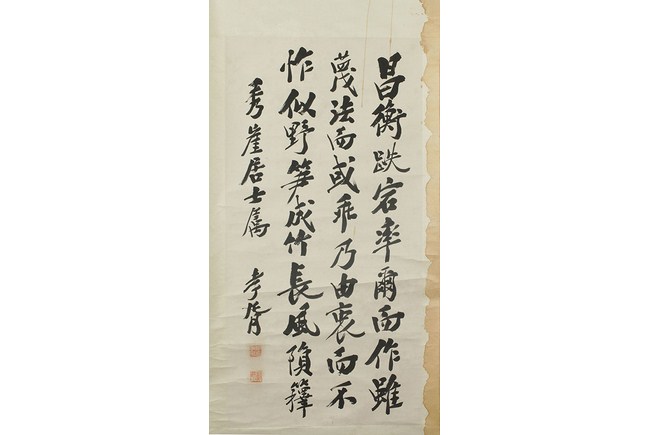 昌衡跌宕率爾而作雖
蔑法而或乖乃由衷而不
怍似野笋成竹長風隕籜
秀崖居士屬 孝胥